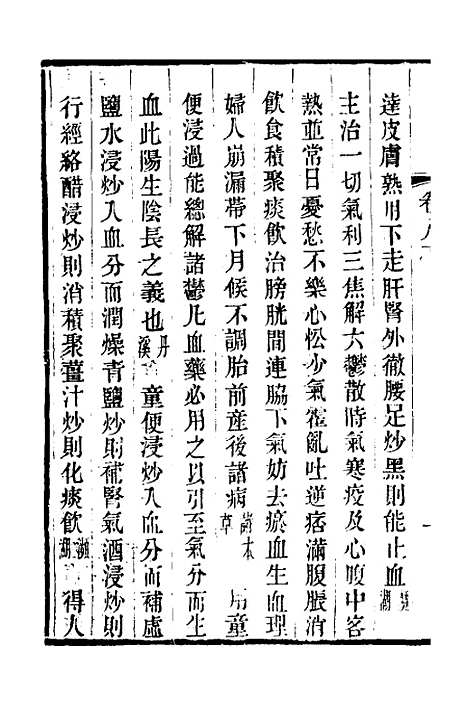 達皮膚熟用下走肝腎外徹腰足炒黑則能止血 瀕湖
主治一切氣利三焦解六鬱散時氣寒疫及心腹中客
熱並常日憂愁不樂心忪少氣霍亂吐逆痞滿腹脹消
飲食積聚痰飲治膀胱間連脇下氣妨去瘀血生血理
婦人崩漏帶下月候不調胎前産後諸病 本草 用童
便浸過能總解諸鬱凡血藥必用之以引至氣分而生
血此陽生陰長之義也 丹溪 童便浸炒入血分而補虛
鹽水浸炒入血分而潤燥青鹽炒則補腎氣酒浸炒則
行經絡醋浸炒則消積聚薑汁炒則化痰飲 瀕湖 得人